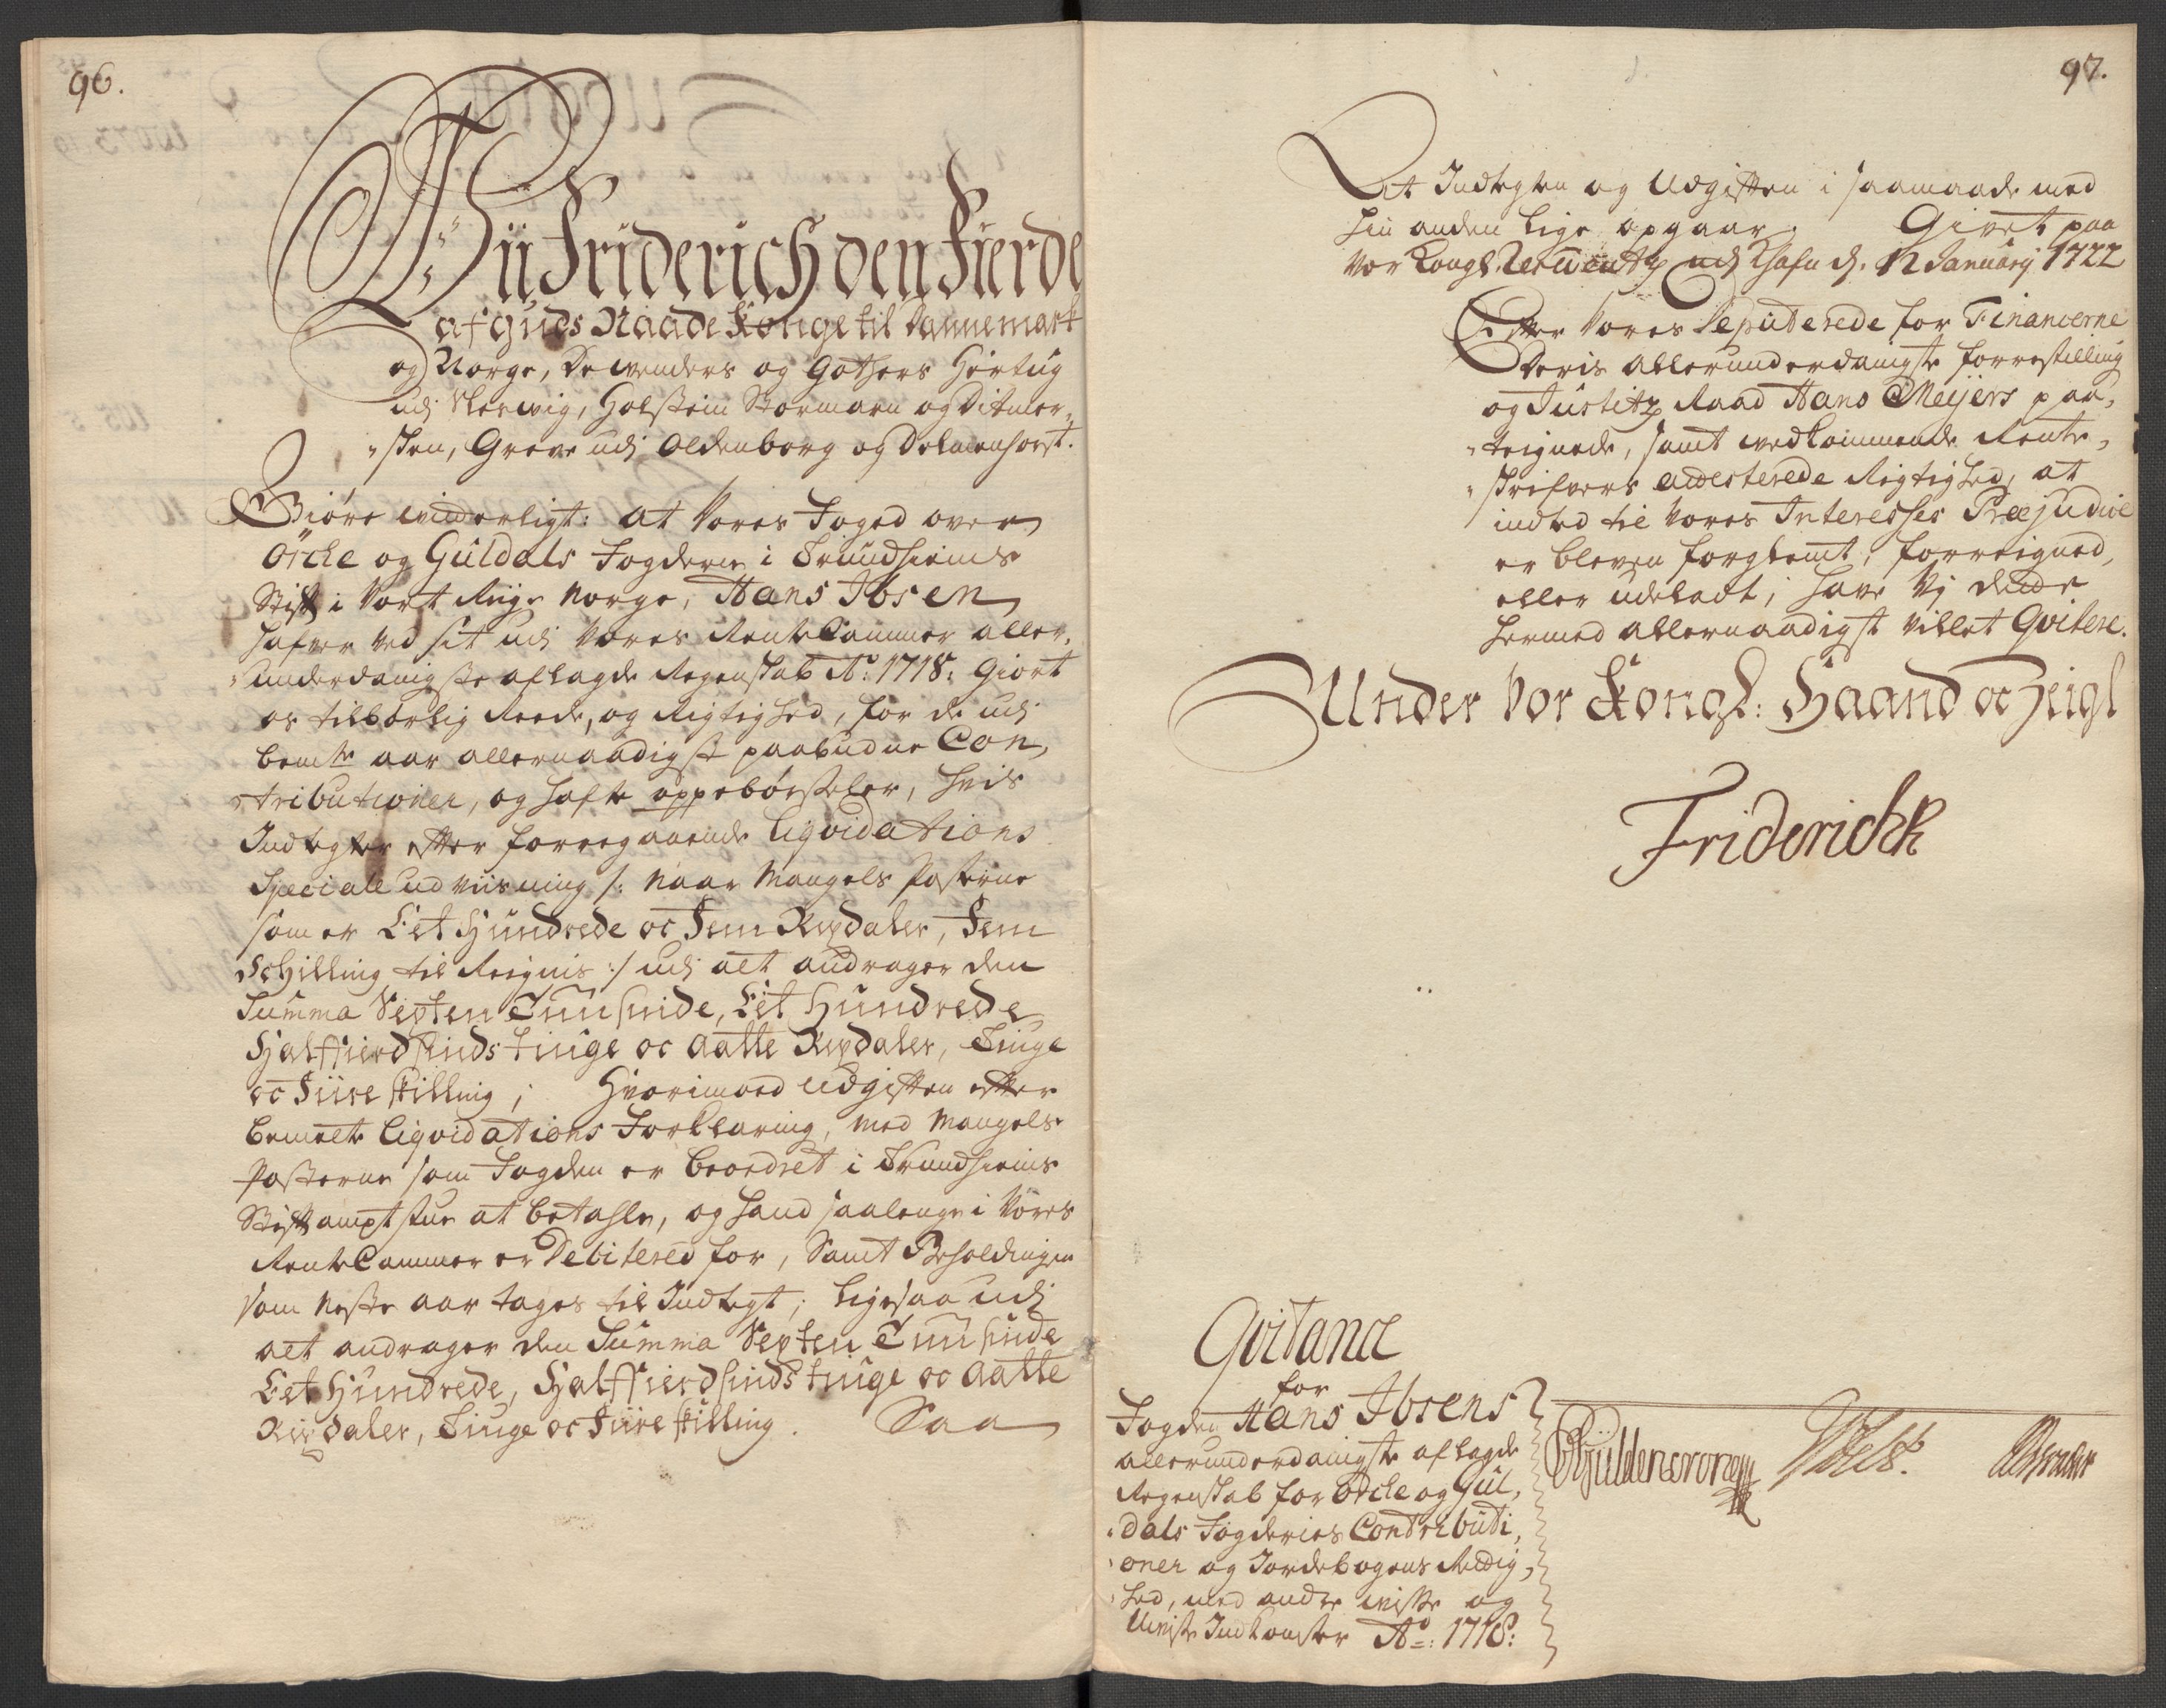 96.
Wii Friderich den Fierde
af Guds Naade Konge til Dannemark
og Norge, De Wenders og Gothers Hertug
udj Slesvig, Holstein Stormarn og Ditmer-
"sken, Greve udj Oldenborg og Delmenhorst.
Giöre Witterligt: at Vores Foged over
Örcke og Güldals Fogderie i Trundhiems
Stift i Vort Riige Norge, Hans Ibsen
hafver ved sit udi Vores Rente Cammer aller-
"underdanigste aflagde Regenskab A: 1718: Giort
os tilbörlig Reede, og Rigtighed, for de udi
bemte aar allernaadigst paabudne Con-
"tributioner, og hafte oppebörseler, hvis
Indtegter efter foregaaende Liqvidations
Speciale udviisning /: naar Mangels Posterne
som er Eet Hundrede oc Fem Rixdaler, Fem
Schilling til Reignis :/ udj alt andrager den
Summa Sexten Tuusinde, Eet Hundrede
Halffierdsindstiuge oc Aatte Rixdaler, Tiuge
oc Fiire skilling; Hvorimod Udgiften efter
bemelte Liqvidations Forklaring, med Mangels
Posterne som Fogden er beordret i Trundhiems
Stiftamptstue at betahle, og hand saalenge i Vores
Rente Cammer er Debitered for, Samt Beholdingen
som neste aar tages til Indtegt; ligesaa udj
alt andrager den Summa Sexten Tuusinde
Eet Hundrede, Halffierdsindstiuge oc Aatte
Rixdaler, Tiuge oc Fiire skilling. Saa
97.
At Indtegten og Udgiften i saamaade med
hin anden lige opgaar. Givet paa
Vor Kongl. Residentz udj Khafn d. 12 Januarij 1722
Efter Vores Deputerede for Financerne
Deris allerunderdanigste forrestilling
og Justitz Raad Hans Meijers paa-
"teignede, samt vedkommende Rente-
"skrifvers attesterede Rigtighed, at
indted til Vores Interesses Præjudice
er bleven forglemt, forreigned,
eller udeladt; have Vj dende
hermed allernaadigst villet Qvitere.
Under Vor Kongl: Haand oc Zeigl
Friderich R
Qvitance
for
Fogden Hans Ibsens
allerunderdanigste aflagde
Regenskab for Örcke og Gül-
"dals Fogderies Contributi-
"oner og Jordebogens Rettig-
"hed, med andre visse og
Uvisse Indkomster A°: 1718:
Güldencrone